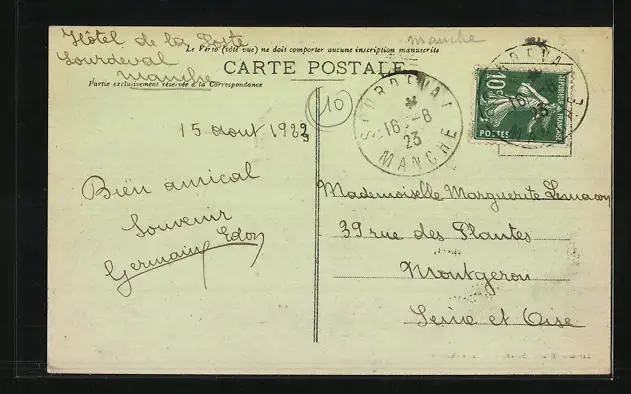 Hôtel de la Poste
Sourdeval
Manche
manche
Le Verso (côté vue) ne doit comporter aucune inscription manuscrite
CARTE POSTALE
Partie exclusivement réservée à la Correspondance
10
SOURDEVAL
16 - 8
23
MANCHE
10c
POSTES
REPUBLIQUE FRANÇAISE
15 aout 1923
Bien amical
Souvenir
Germain Edon
Mademoiselle Marguerite
39 rue des Plantes
Montgeron
Seine et Oise